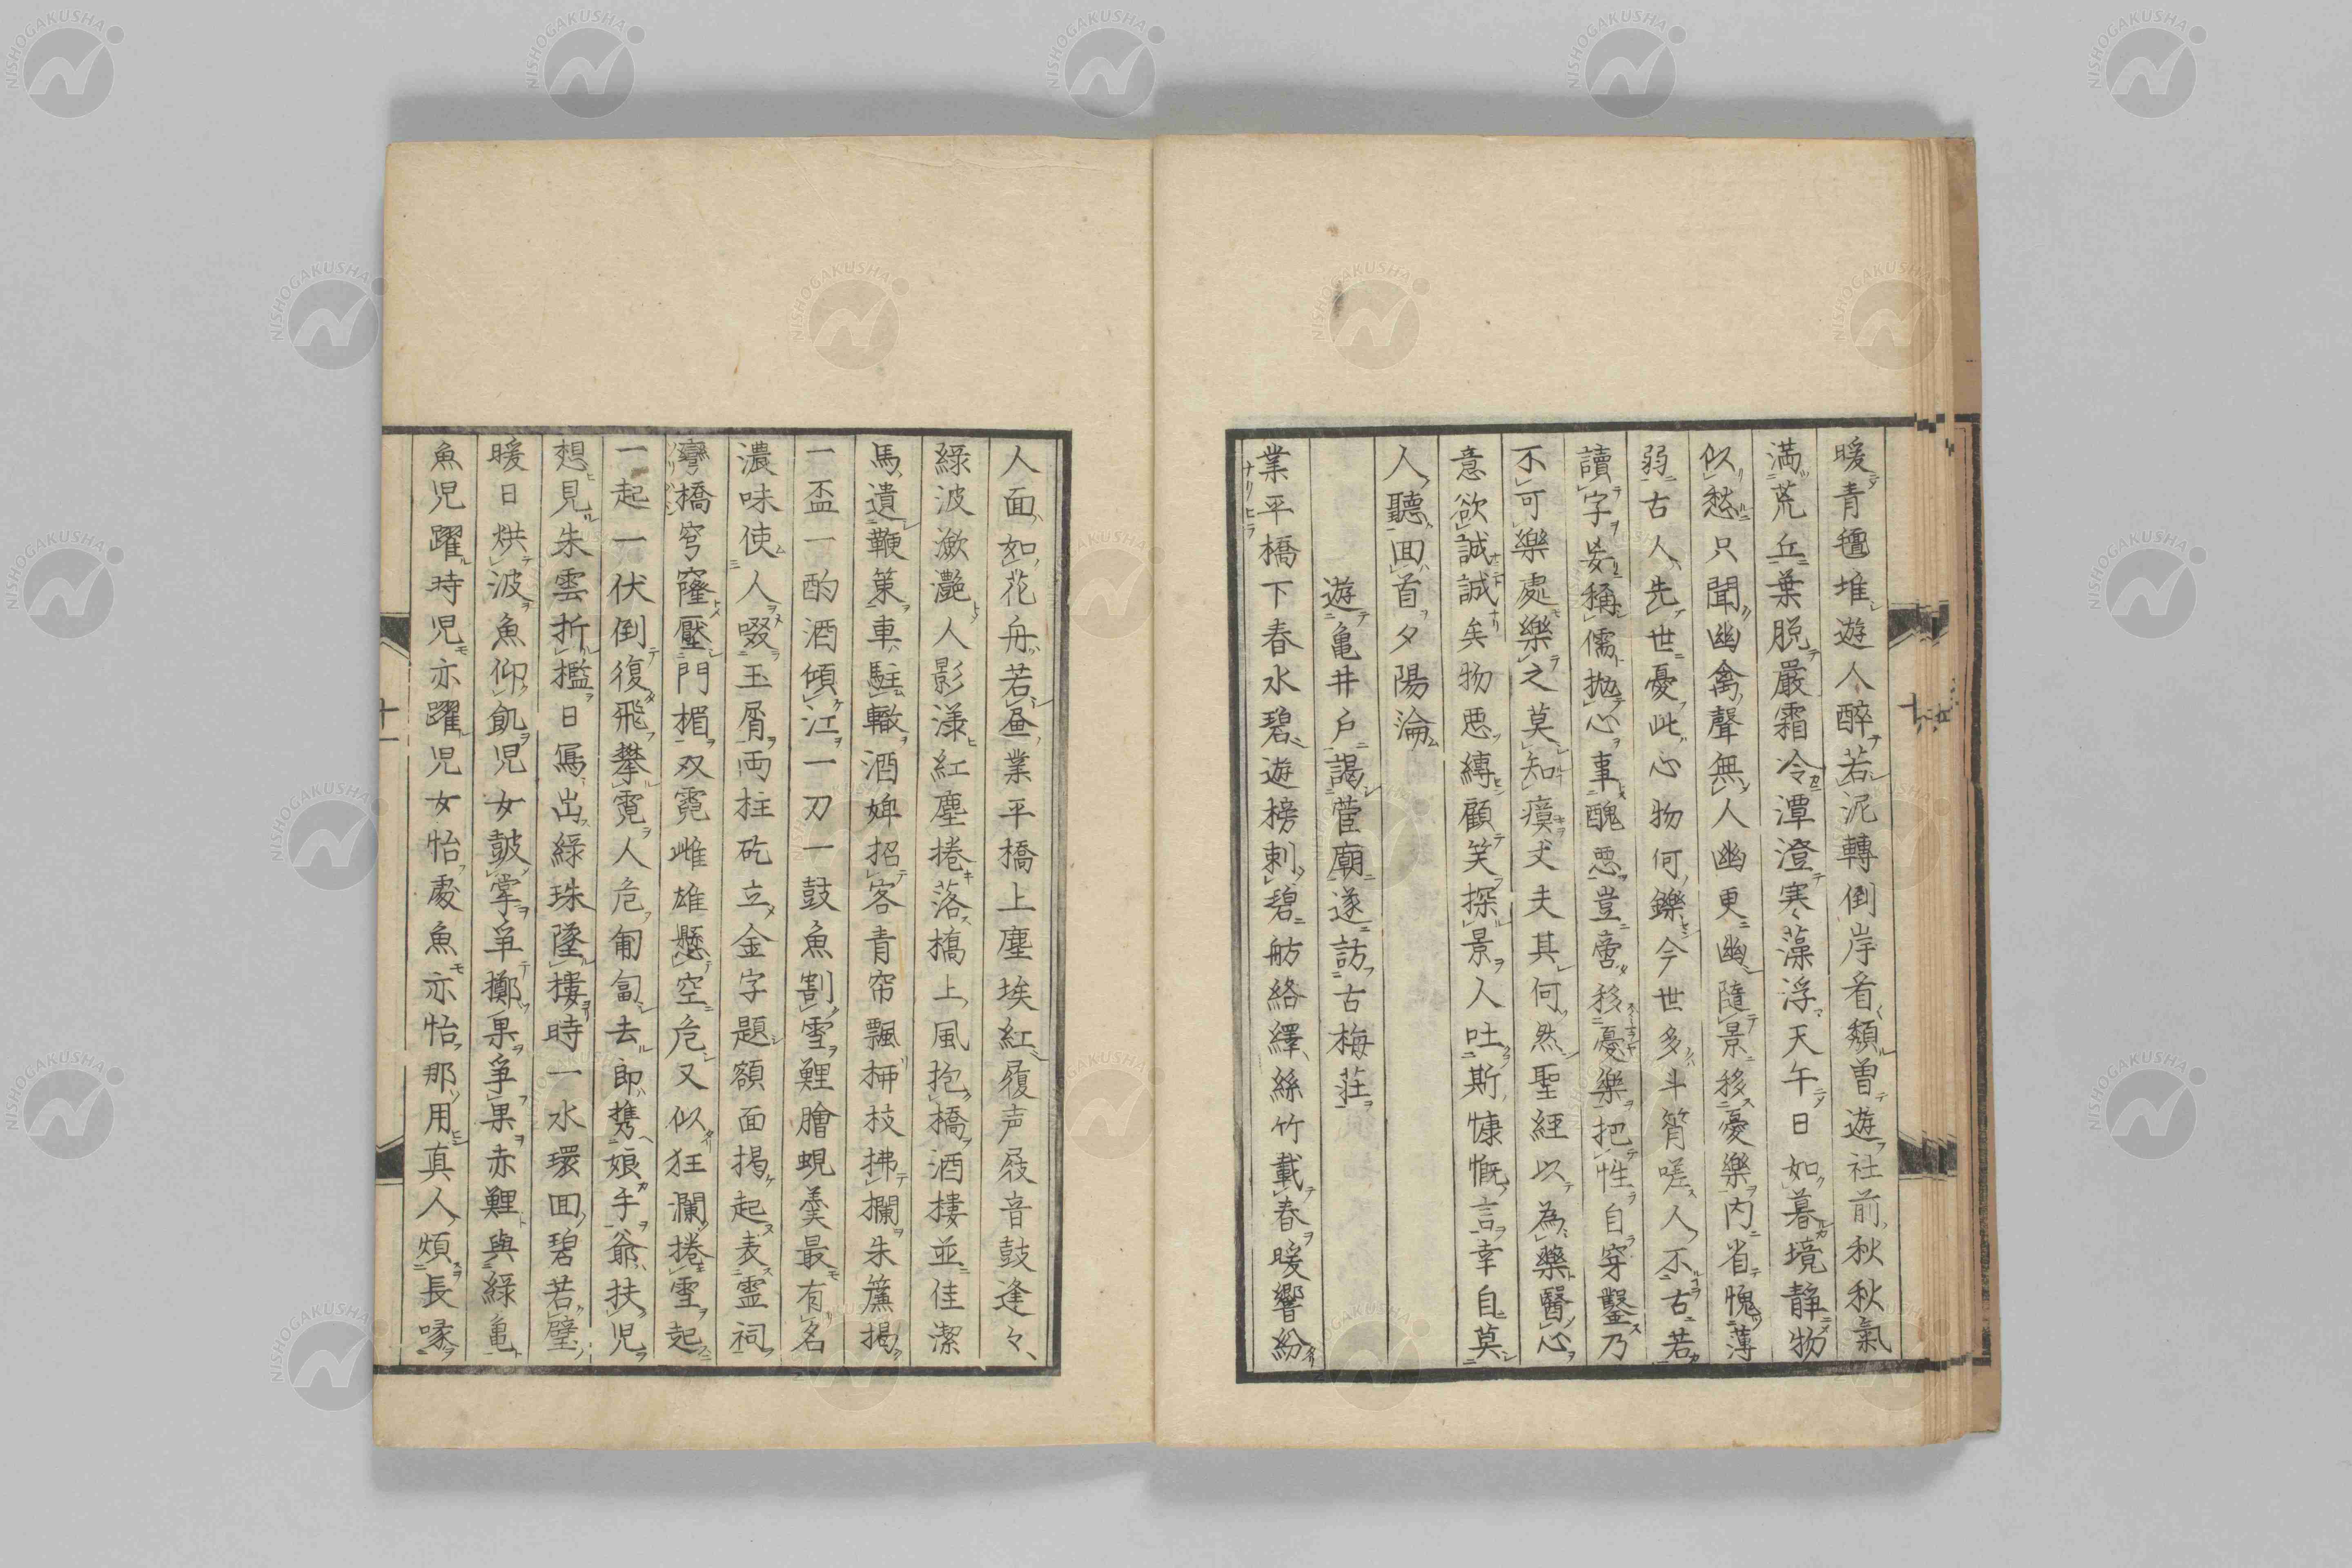 暖青氊堆遊人醉若泥轉倒岸看頽曽遊社前秋秋氣
満荒丘葉脱嚴霜冷潭澄寒藻浮天午日如暮境静物
似愁只聞幽禽聲無人幽更幽隨景移憂樂内省愧薄
弱古人先世憂此心物何鑠今世多斗筲嗟人不古若
讀字妄稱儒抛心事醜悪豈啻移憂樂把性自穿鑿乃
不可樂處樂之莫知瘼丈夫其何然聖經以為藥醫心
意欲誠誠矣物悪縛顧笑探景人吐斯慷慨言幸自莫
人聽囬首夕陽淪
遊亀井戸謁菅廟遂訪古梅荘
業平橋下春水碧遊榜刺碧舫絡繹絲竹載春暖響紛
人面如花舟若昼業平橋上塵埃紅履声屐音鼓逢々
綠波瀲灔人影漾紅塵捲落橋上風抱橋酒樓並佳潔
馬遺鞭策車駐轍酒婢招客青帘飄柳枝拂欄朱簾掲
一盃一酌酒傾江一刀一鼓魚割雪鯉膾蜆羮最有名
濃味使人啜玉屑両柱矻立金字題額面掲起表霊祠
彎橋穹窿壓門楣双霓雌雄懸空危又似狂瀾捲雪起
一起一伏倒復飛攀霓人危匍匐去郎携娘手爺扶児
想見朱雲折檻日寫出綠珠墜樓時一水環囬碧若璧
暖日烘波魚仰飢児女皷掌爭擲果爭果赤鯉與綠亀
魚児躍時児亦躍児女怡處魚亦怡那用真人煩長喙
ナリヒラ
ソリバシ
十
十一
NISHOGAKUSHA